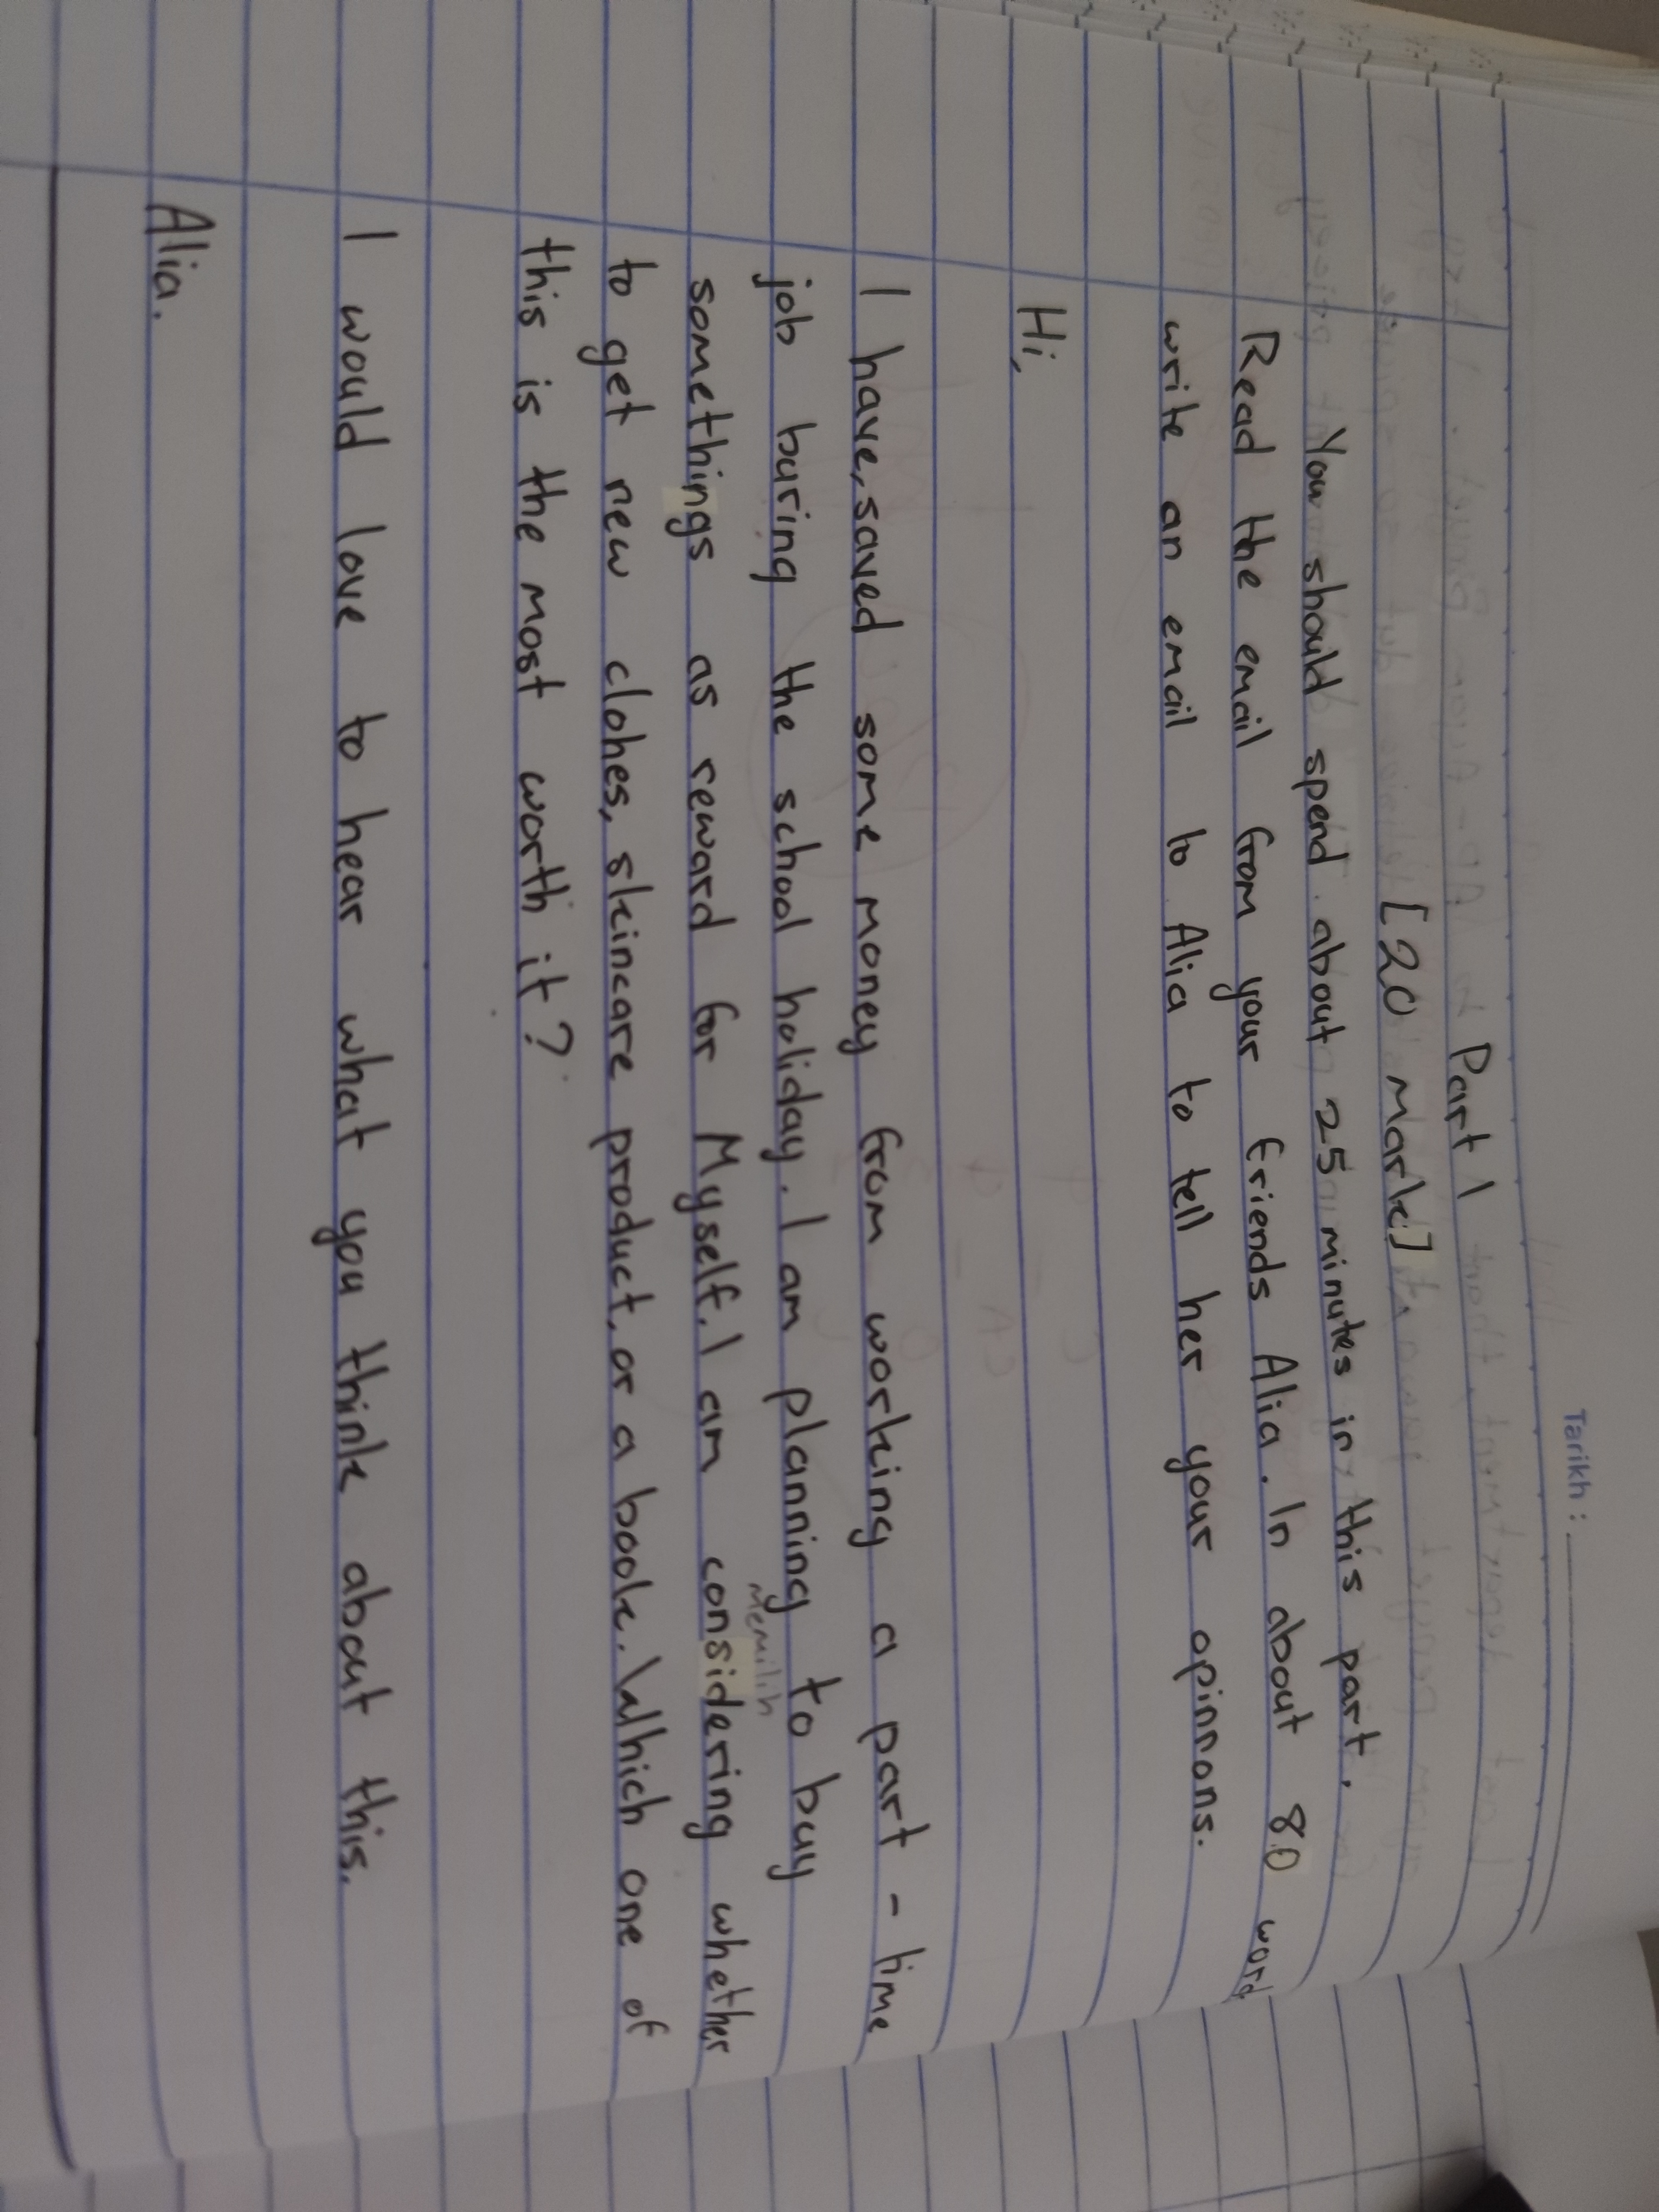 Tarikh :
Part 1
[20 mark]
You should spend about 25 minutes in this part.
Read the email from your friends Alia. In about 80 word
write an email to Alia to tell her your opinnons.
Hi,
I have, saved some money from working a part - time
job buring the school holiday. I am planning to buy
somethings as reward for Myself. I am considering whether
memilih
to get new clohes, skincare product, or a book. Which one of
this is the most worth it?
I would love to hear what you think about this.
Alia.